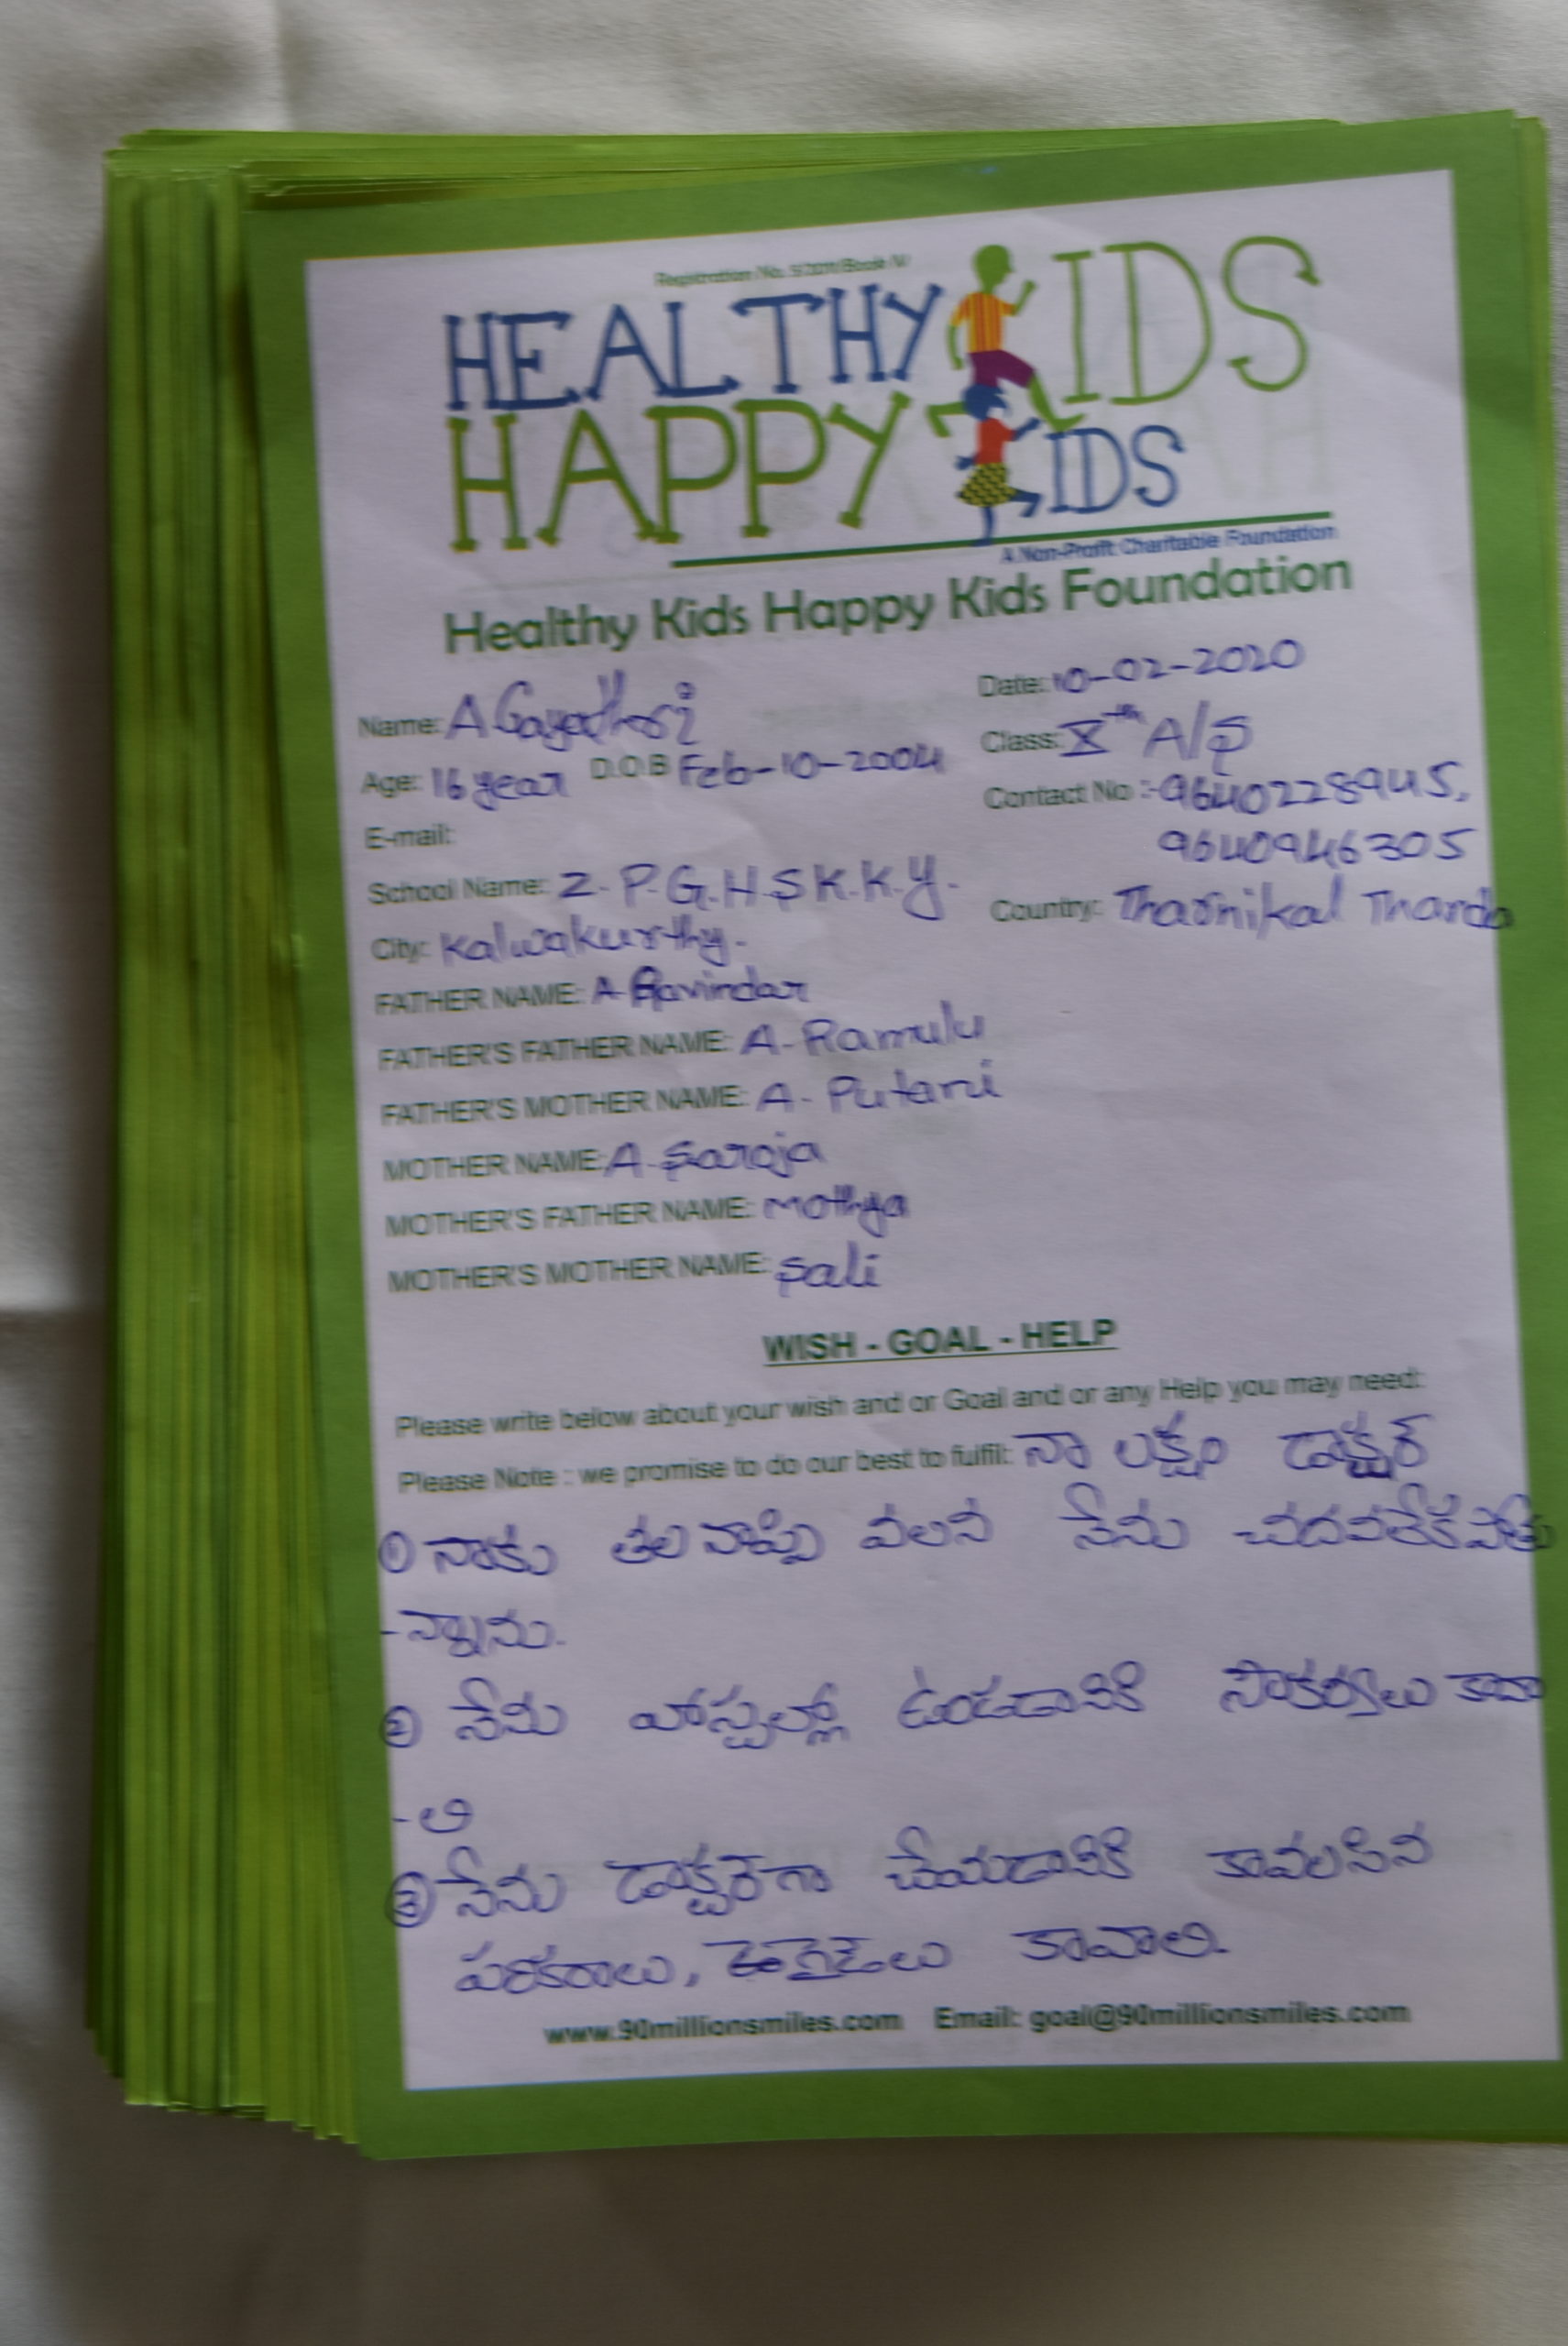 Registration No. 5/2011/Book IV
HEALTHY KIDS
HAPPY KIDS
A Non-Profit Charitable Foundation
Healthy Kids Happy Kids Foundation
Name: A Gayathori Date: 10-02-2020
Age: 16 year D.O.B Feb-10-2004 Class: Xth A/s
E-mail: Contact No :- 9640228945,
9640946305
School Name: Z.P.G.H.S K.K.Y. Country: Tharnikal Thanda
City: Kalwakurthy.
FATHER NAME: A Ravindar
FATHER'S FATHER NAME: A. Ramulu
FATHER'S MOTHER NAME: A. Putani
MOTHER NAME: A. Saroja
MOTHER'S FATHER NAME: Mothya
MOTHER'S MOTHER NAME: Sali
WISH - GOAL - HELP
Please write below about your wish and or Goal and or any Help you may need:
Please Note : we promise to do our best to fulfil: నా లక్ష్యం డాక్టర్
① నాకు తల నొప్పి వలన నేను చదవలేకపోతు
-న్నాను.
② నేను హాస్పటల్లో ఉండడానికి సౌకర్యాలు కావా
-లి
③ నేను డాక్టర్‌గా చేయడానికి కావలసిన
పరికరాలు, కావాలి.
www.90millionsmiles.com Email: goal@90millionsmiles.com